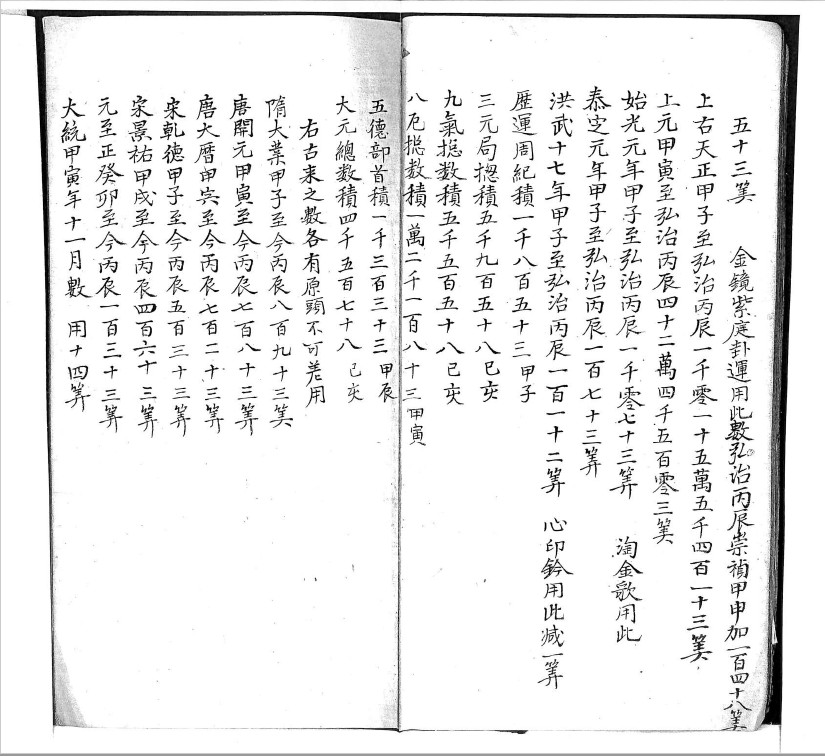 五十三筭　金鏡紫庭卦運用此數弘治丙辰崇禎甲申加一百四十八筭
上古天正甲子至弘治丙辰一千零一十五萬五千四百一十三筭
上元甲寅至弘治丙辰四十二萬四千五百零三筭
始光元年甲子至弘治丙辰一千零七十三筭　淘金歌用此
泰定元年甲子至弘治丙辰一百七十三筭
洪武十七年甲子至弘治丙辰一百一十二筭　心印鈐用此減一筭
歷運周紀積一千八百五十三甲子
三元局摠積五千九百五十八己亥
九氣摠数積五千五百五十八己亥
八厄摠数積一萬二千一百八十三甲寅
五德部首積一千三百三十三甲辰
大元總数積四千五百七十八己亥
右古来之數各有原頭不可差用
隋大業甲子至今丙辰八百九十三筭
唐開元甲寅至今丙辰七百八十三筭
唐大曆甲寅至今丙辰七百二十三筭
宋乾德甲子至今丙辰五百三十三筭
宋景祐甲戌至今丙辰四百六十三筭
元至正癸卯至今丙辰一百三十三筭
大統甲寅年十一月數　用十四筭